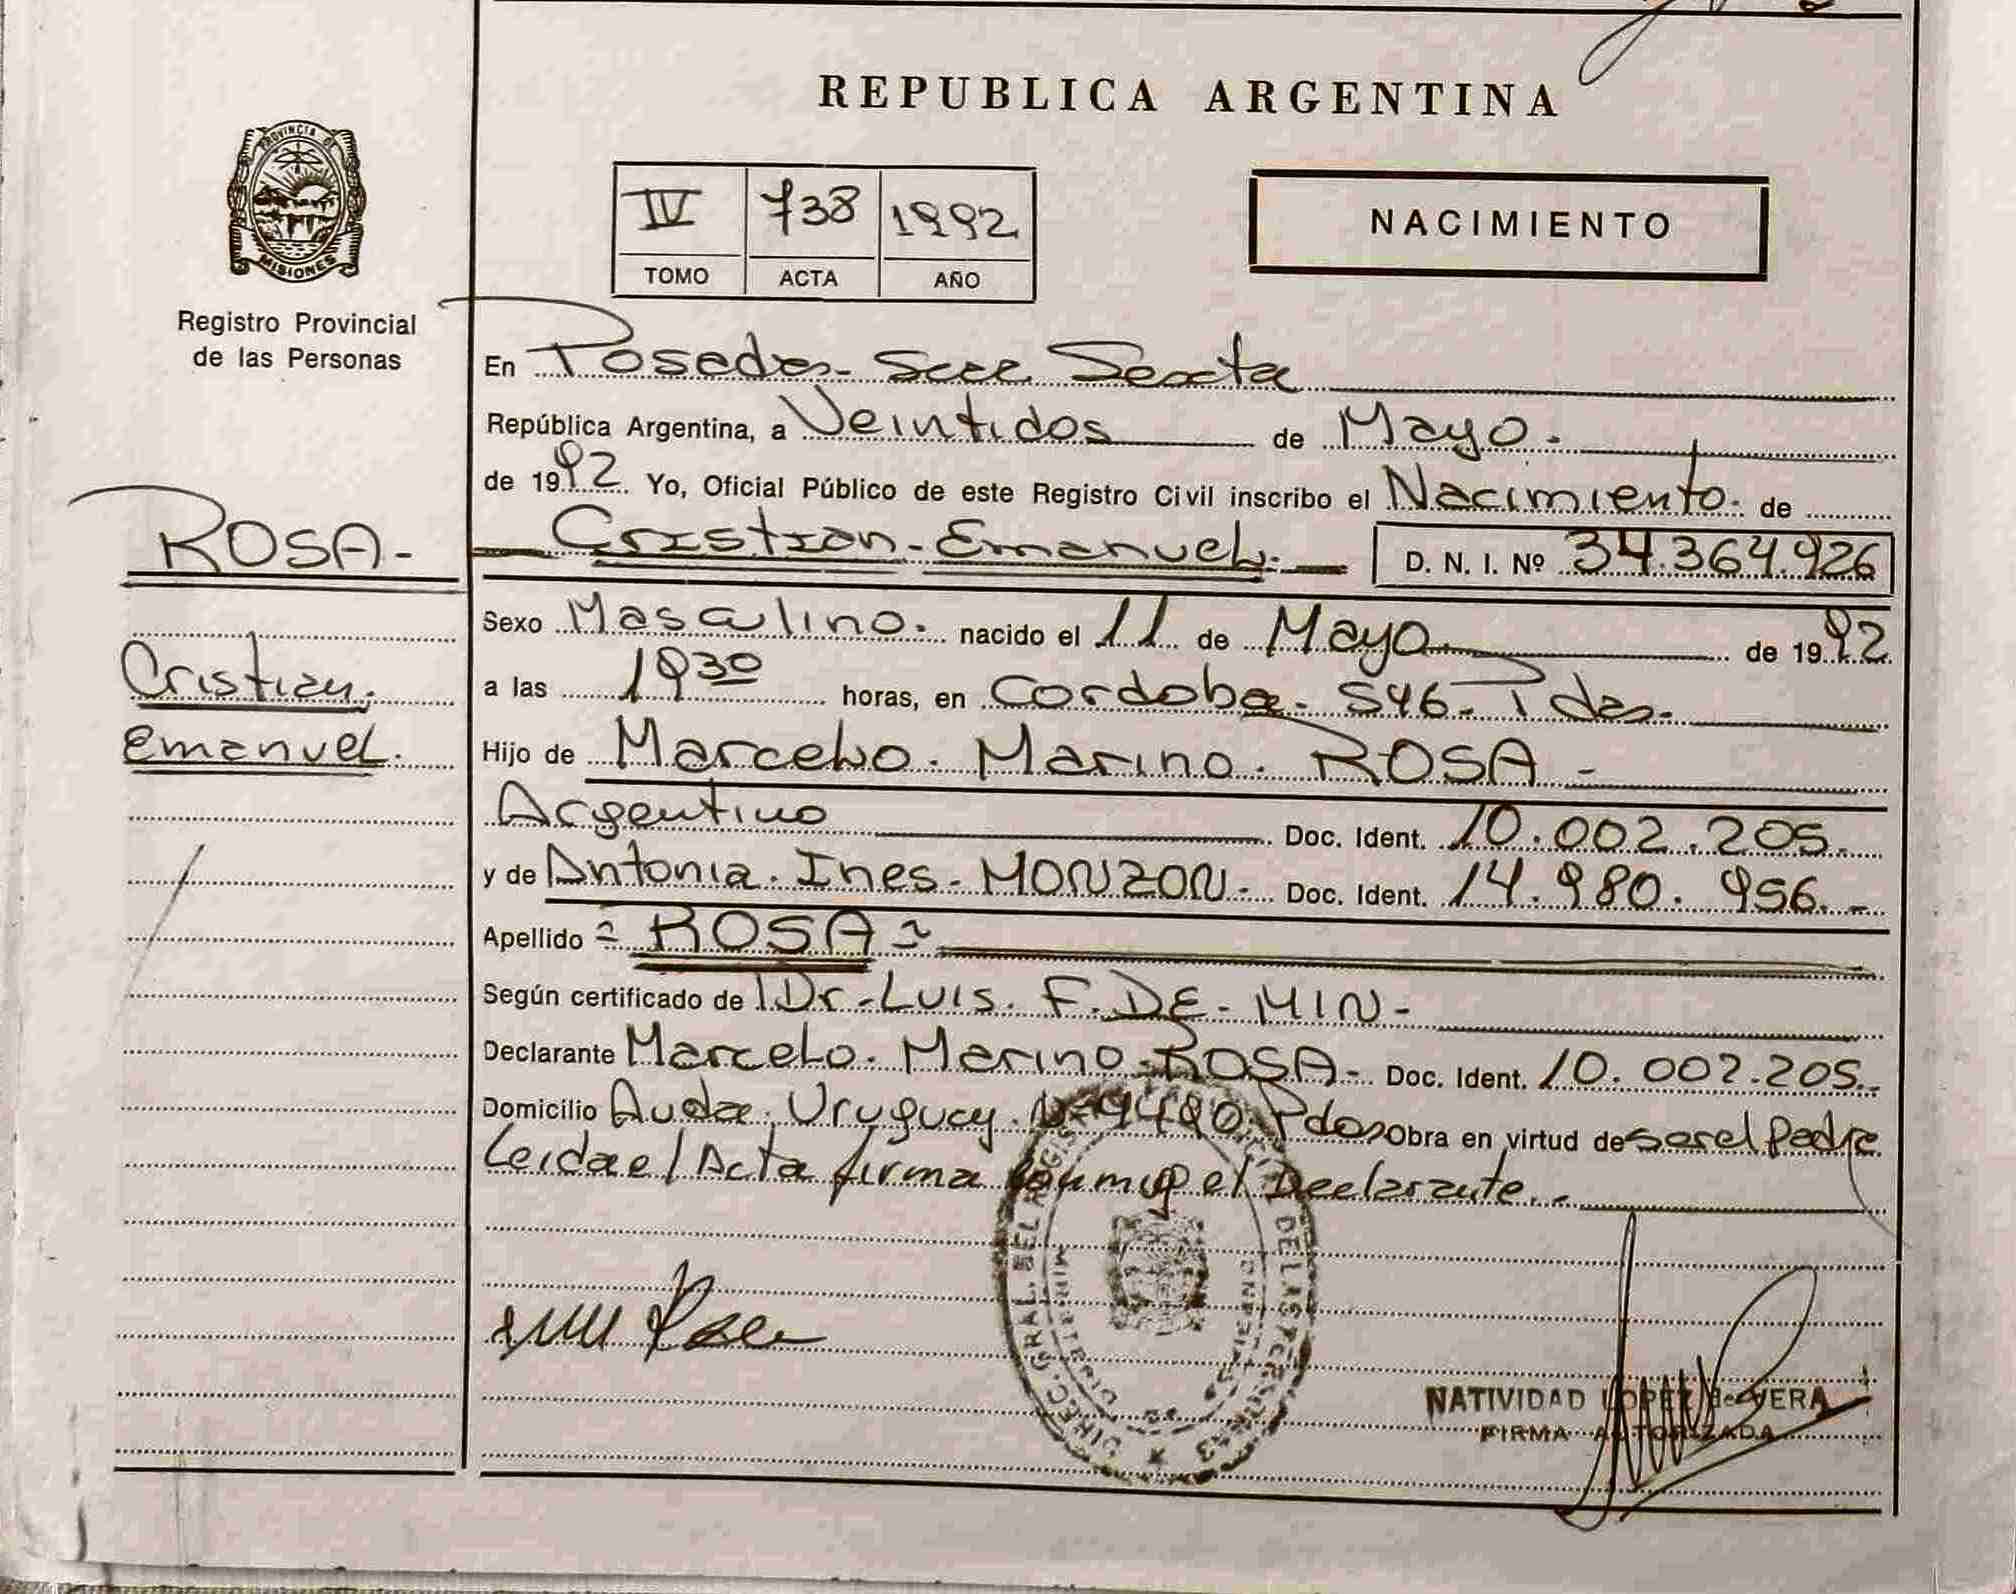 REPUBLICA ARGENTINA
PROVINCIA DE
MISIONES
Registro Provincial
de las Personas
IV 738 1992
TOMO ACTA AÑO
NACIMIENTO
En Posadas - Secc Sexta
República Argentina, a Veintidos de Mayo.
de 1992. Yo, Oficial Público de este Registro Civil inscribo el Nacimiento. de
ROSA-
Cristian.
Emanuel.
Cristian. Emanuel. D. N. I. Nº 34.364.926
Sexo Masculino. nacido el 11 de Mayo de 1992.
a las 1930 horas, en Cordoba. 546. Pdas.
Hijo de Marcelo. Marino. ROSA -
Argentino Doc. Ident. 10.002.205.
y de Antonia. Ines. MONZON. Doc. Ident. 14.980.956.-
Apellido - ROSA -
Según certificado de Dr. LUIS. F. DE. MIN-
Declarante Marcelo. Marino. ROSA. Doc. Ident. 10.002.205.
Domicilio Avda. Uruguay. Nº Pdas Obra en virtud de ser el padre
Leida el Acta firma el Declarante.-
DIREC. GRAL. DEL REGIS DE LAS PERSONAS
NATIVIDAD LOPEZ de VERA
FIRMA AUTORIZADA